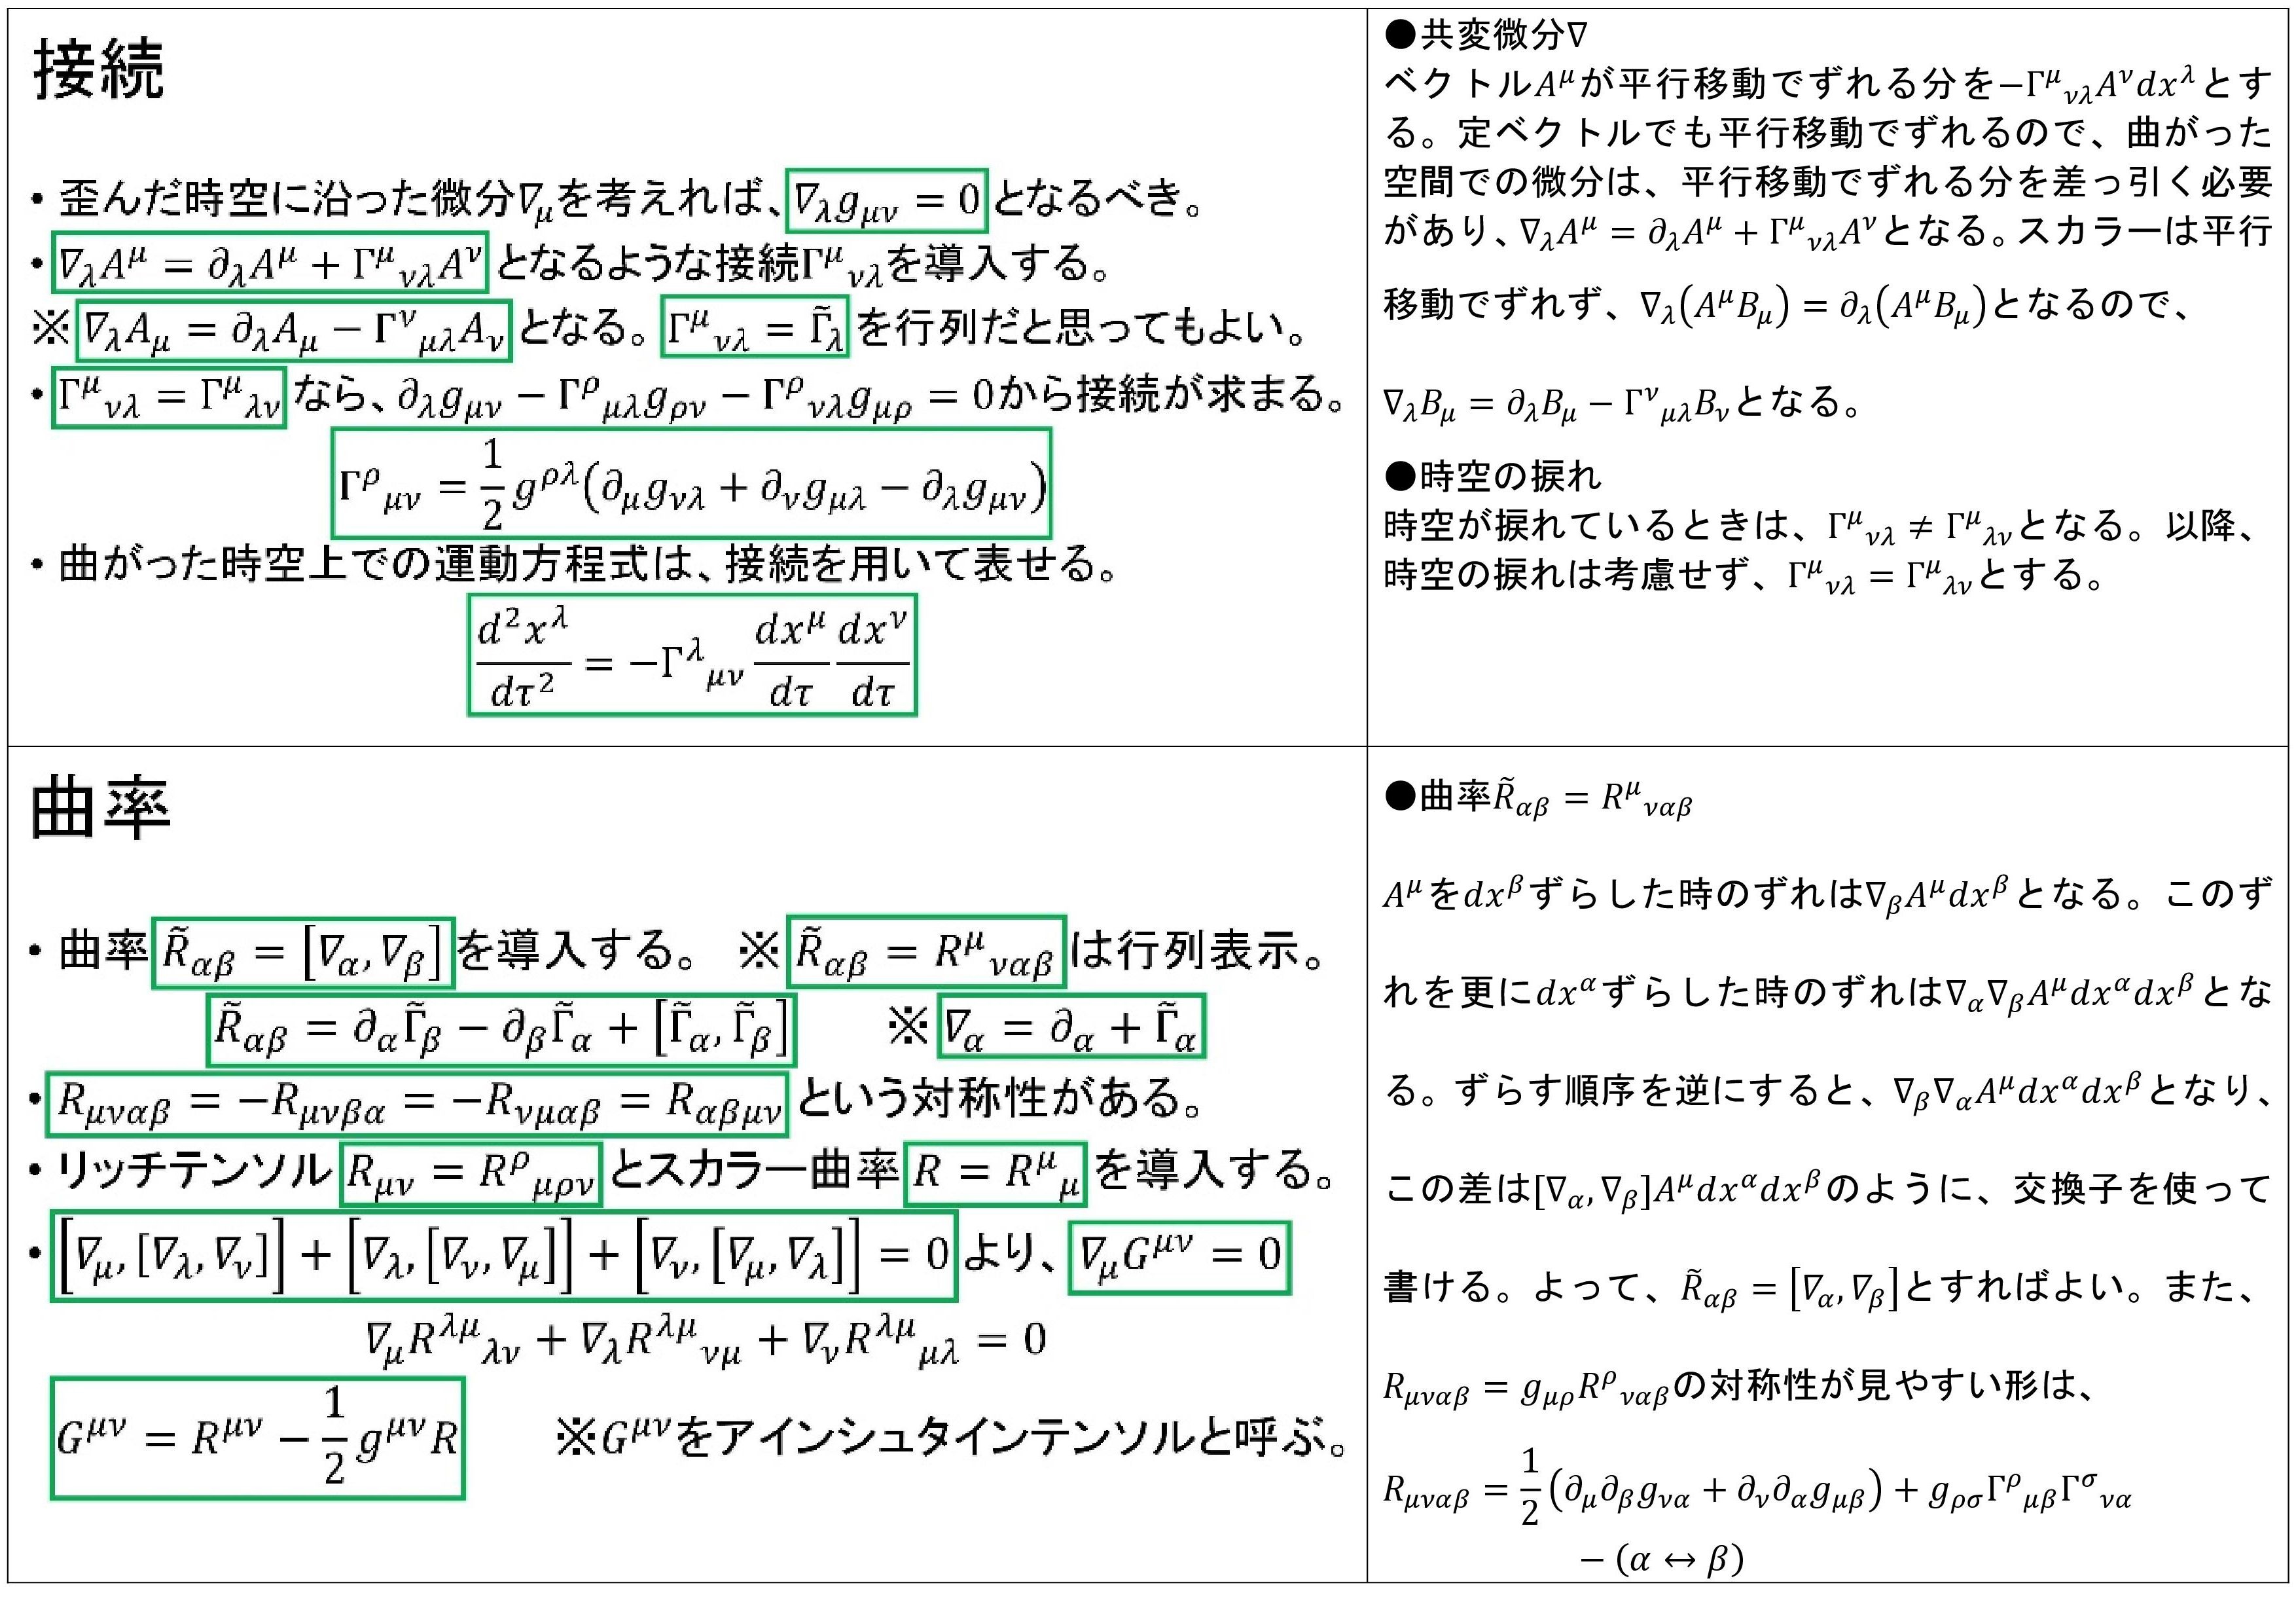 接続
・歪んだ時空に沿った微分∇_μを考えれば、∇_λ g_{μν} = 0 となるべき。
・∇_λ A^μ = ∂_λ A^μ + Γ^μ_{νλ} A^ν となるような接続Γ^μ_{νλ}を導入する。
※∇_λ A_μ = ∂_λ A_μ − Γ^ν_{μλ} A_ν となる。Γ^μ_{νλ} = Γ̃_λ を行列だと思ってもよい。
・Γ^μ_{νλ} = Γ^μ_{λν} なら、∂_λ g_{μν} − Γ^ρ_{μλ} g_{ρν} − Γ^ρ_{νλ} g_{μρ} = 0から接続が求まる。
Γ^ρ_{μν} = 1/2 g^{ρλ}(∂_μ g_{νλ} + ∂_ν g_{μλ} − ∂_λ g_{μν})
・曲がった時空上での運動方程式は、接続を用いて表せる。
d²x^λ/dτ² = −Γ^λ_{μν} dx^μ/dτ dx^ν/dτ
●共変微分∇
ベクトルA^μが平行移動でずれる分を−Γ^μ_{νλ} A^ν dx^λとす
る。定ベクトルでも平行移動でずれるので、曲がった
空間での微分は、平行移動でずれる分を差っ引く必要
があり、∇_λ A^μ = ∂_λ A^μ + Γ^μ_{νλ} A^νとなる。スカラーは平行
移動でずれず、∇_λ(A^μ B_μ) = ∂_λ(A^μ B_μ)となるので、
∇_λ B_μ = ∂_λ B_μ − Γ^ν_{μλ} B_νとなる。
●時空の捩れ
時空が捩れているときは、Γ^μ_{νλ} ≠ Γ^μ_{λν}となる。以降、
時空の捩れは考慮せず、Γ^μ_{νλ} = Γ^μ_{λν}とする。
曲率
・曲率 R̃_{αβ} = [∇_α, ∇_β] を導入する。 ※ R̃_{αβ} = R^μ_{ναβ} は行列表示。
R̃_{αβ} = ∂_α Γ̃_β − ∂_β Γ̃_α + [Γ̃_α, Γ̃_β] ※ ∇_α = ∂_α + Γ̃_α
・R_{μναβ} = −R_{μνβα} = −R_{νμαβ} = R_{αβμν} という対称性がある。
・リッチテンソル R_{μν} = R^ρ_{μρν} とスカラー曲率 R = R^μ_μ を導入する。
・[∇_μ, [∇_λ, ∇_ν]] + [∇_λ, [∇_ν, ∇_μ]] + [∇_ν, [∇_μ, ∇_λ]] = 0 より、∇_μ G^{μν} = 0
∇_μ R^{λμ}_{λν} + ∇_λ R^{λμ}_{νμ} + ∇_ν R^{λμ}_{μλ} = 0
G^{μν} = R^{μν} − 1/2 g^{μν} R ※G^{μν}をアインシュタインテンソルと呼ぶ。
●曲率R̃_{αβ} = R^μ_{ναβ}
A^μをdx^βずらした時のずれは∇_β A^μ dx^βとなる。このず
れを更にdx^αずらした時のずれは∇_α ∇_β A^μ dx^α dx^βとな
る。ずらす順序を逆にすると、∇_β ∇_α A^μ dx^α dx^βとなり、
この差は[∇_α, ∇_β]A^μ dx^α dx^βのように、交換子を使って
書ける。よって、R̃_{αβ} = [∇_α, ∇_β]とすればよい。また、
R_{μναβ} = g_{μρ} R^ρ_{ναβ}の対称性が見やすい形は、
R_{μναβ} = 1/2 (∂_μ ∂_β g_{να} + ∂_ν ∂_α g_{μβ}) + g_{ρσ} Γ^ρ_{μβ} Γ^σ_{να}
− (α ↔ β)